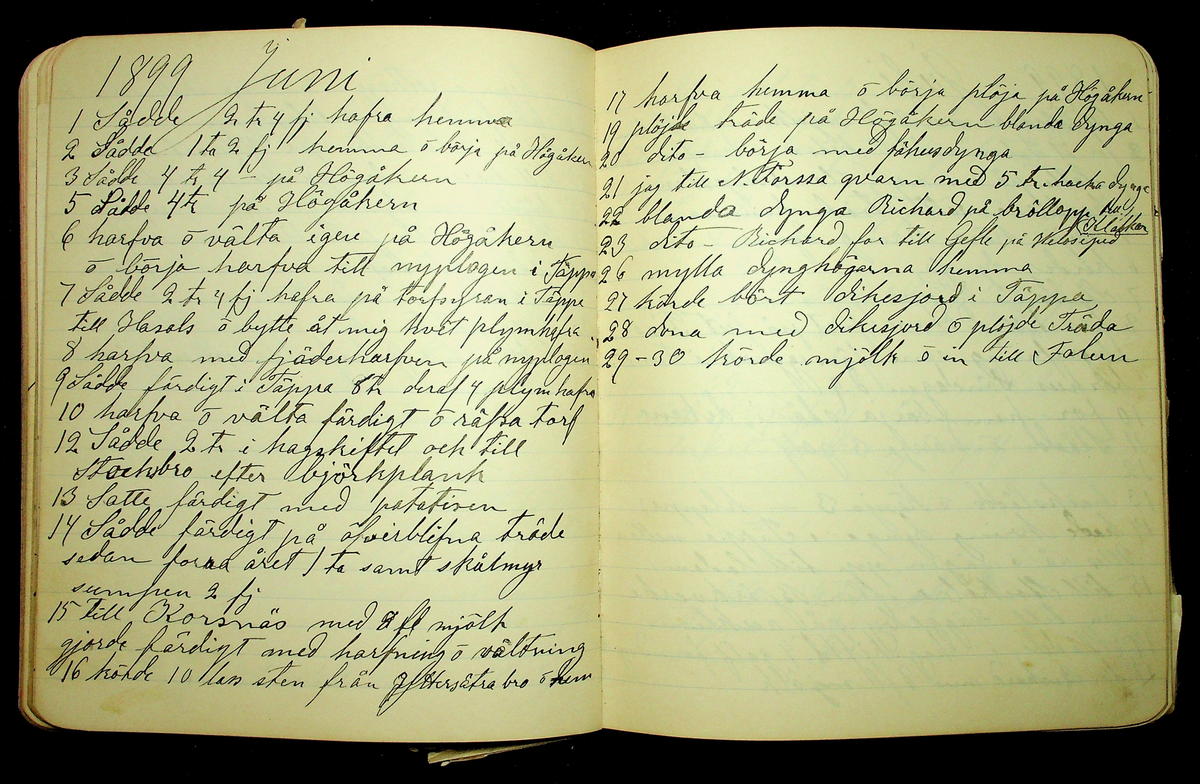 1899 Juni
1 Sådde 2 tr 4 fj hafra hemma
2 Sådde 1 ta 2 fj hemma o börja på Högåkern
3 Sådde 4 tr 4 - på Högåkern
5 Sådde 4 tr på Högåkern
6 harfva o välta igen på Högåkern
o börja harfva till nyplogen i Täppa
7 Sådde 2 tr 4 fj hafra på torfströn i Täppe
till Hasols o bytte åt mig hvit plymhafra
8 harfva med fjäderharfven på nyplogen
9 Sådde färdigt i Täppa 8 tr deraf 4 plymhafra
10 harfva o välta färdigt o räfsa torf
12 Sådde 2 tr i hagskiftet och till
Stockbro efter björkplank
13 Satte färdigt med potatisen
14 Sådde färdigt på öfverblifna träde
sedan forra året 1 ta samt skålmyr
sumpen 2 fj
15 till Korsnäs med 8 fl mjölk
gjorde färdigt med harfning o vältning
16 körde 10 lass sten från Yttersätra bro o hem
17 harfva hemma o börja plöja på Högåkern
19 plöjde träde på Högåkern blanda dynga
20 dito - börja med fähusdynga
21 jag till N. Forssa qvarn med 5 tr. hacka dynga
22 blanda dynga Richard på bröllopp hos Klockar
23 dito - Richard for till Gefle på
26 mylla dynghögarna hemma
27 körde bort dikesjord i Täppa
28 dona med dikesjord o plöjde Träda
29 - 30 körde mjölk o in till Falun